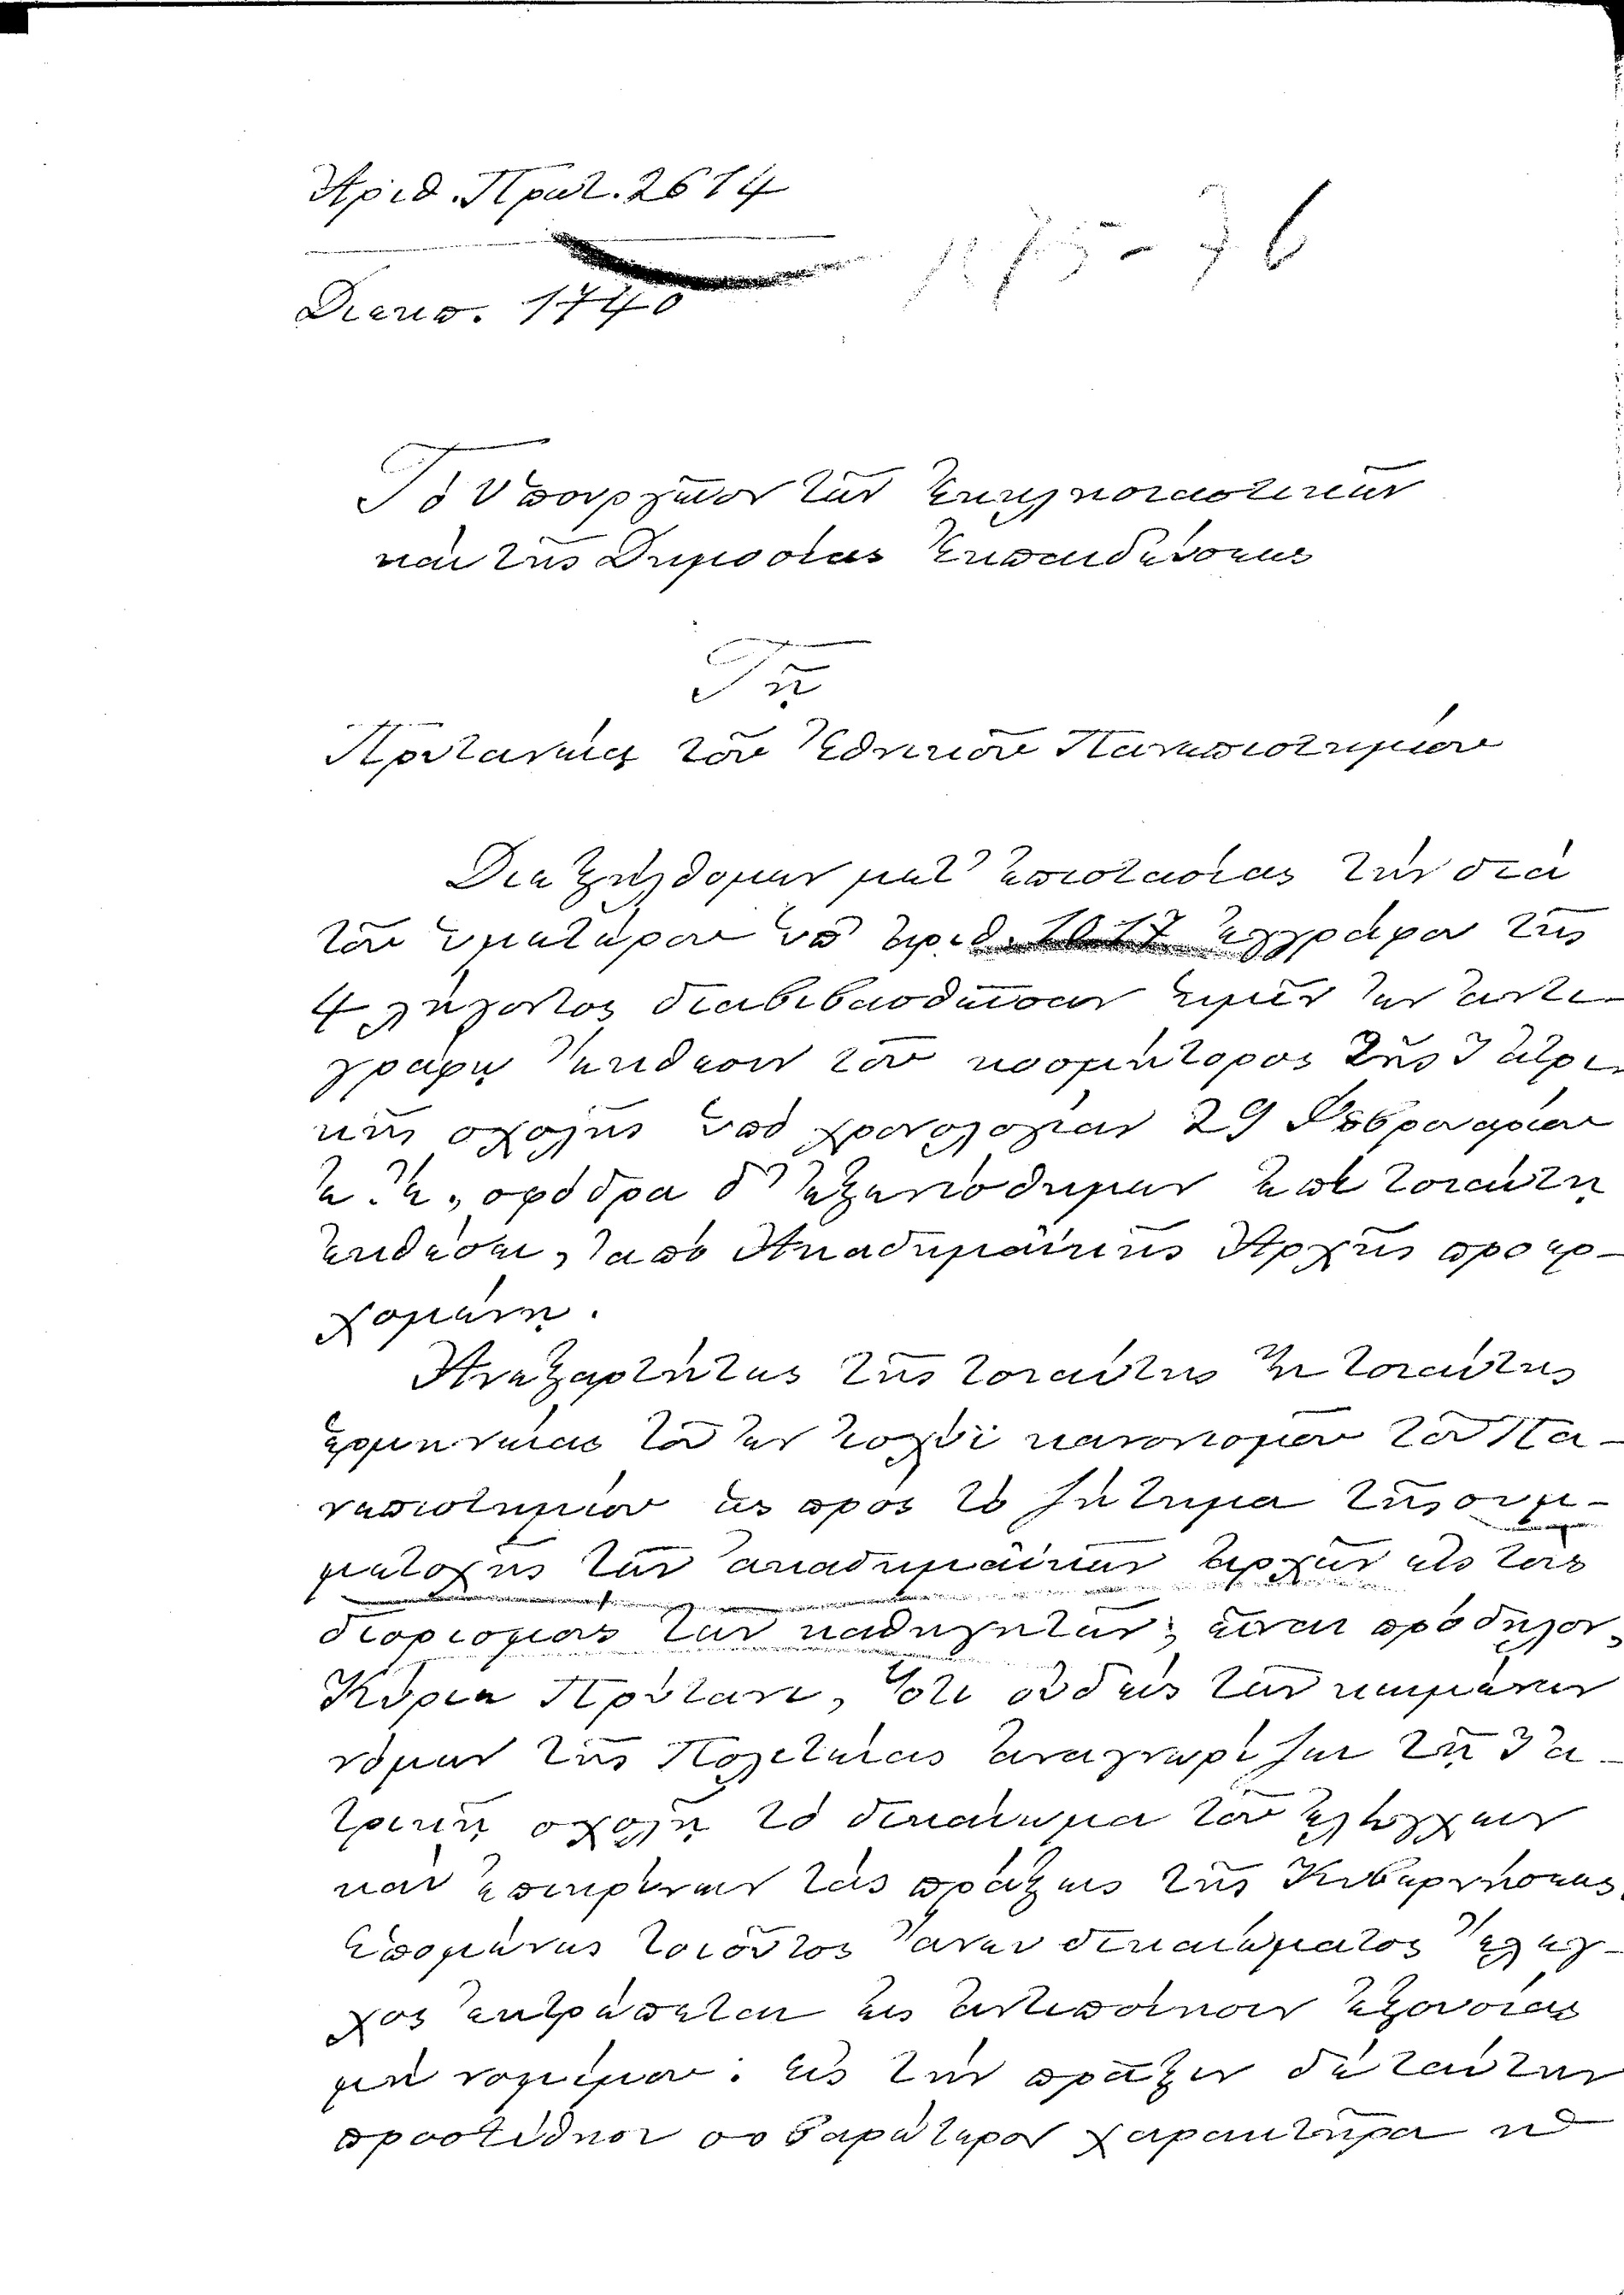 Ἀριθ. Πρωτ. 2614
1875-76
Διεκπ. 1740
Τὸ Ὑπουργεῖον τῶν Ἐκκλησιαστικῶν
καὶ τῆς Δημοσίας Ἐκπαιδεύσεως
Τῇ
Πρυτανείᾳ τοῦ Ἐθνικοῦ Πανεπιστημίου
Διεξήλθομεν μετ' ἐπιστασίας τὴν διὰ
τοῦ ὑμετέρου ὑπ' ἀριθ. 1017 ἐγγράφου τῆς
4 λήγοντος διαβιβασθεῖσαν ἡμῖν ἐν ἀντι-
γράφῳ ἔκθεσιν τοῦ κοσμήτορος τῆς Ἰατρι-
κῆς σχολῆς ὑπὸ χρονολογίαν 29 Φεβρουαρίου
ἐ. ἔ., σφόδρα δ' ἐξενίσθημεν ἐπὶ τοιαύτῃ
ἐκθέσει, ἀπὸ Ἀκαδημαϊκῆς Ἀρχῆς προερ-
χομένῃ.
Ἀνεξαρτήτως τῆς τοιαύτης ἢ τοιαύτης
ἑρμηνείας τοῦ ἐν ἰσχύϊ κανονισμοῦ τοῦ Πα-
νεπιστημίου ὡς πρὸς τὸ ζήτημα τῆς συμ-
μετοχῆς τῶν ἀκαδημαϊκῶν ἀρχῶν εἰς τοὺς
διορισμοὺς τῶν καθηγητῶν, εἶναι πρόδηλον,
Κύριε Πρύτανι, ὅτι οὐδεὶς τῶν κειμένων
νόμων τῆς Πολιτείας ἀναγνωρίζει τῇ Ἰα-
τρικῇ σχολῇ τὸ δικαίωμα τοῦ ἐλέγχειν
καὶ ἐπικρίνειν τὰς πράξεις τῆς Κυβερνήσεως.
Ἑπομένως τοιοῦτος ἄνευ δικαιώματος ἔλεγ-
χος ἐκτρέπεται εἰς ἀντιποίησιν ἐξουσίας
μὴ νομίμου· εἰς τὴν πρᾶξιν δὲ ταύτην
προστίθησι σοβαρώτερον χαρακτῆρα ἡ